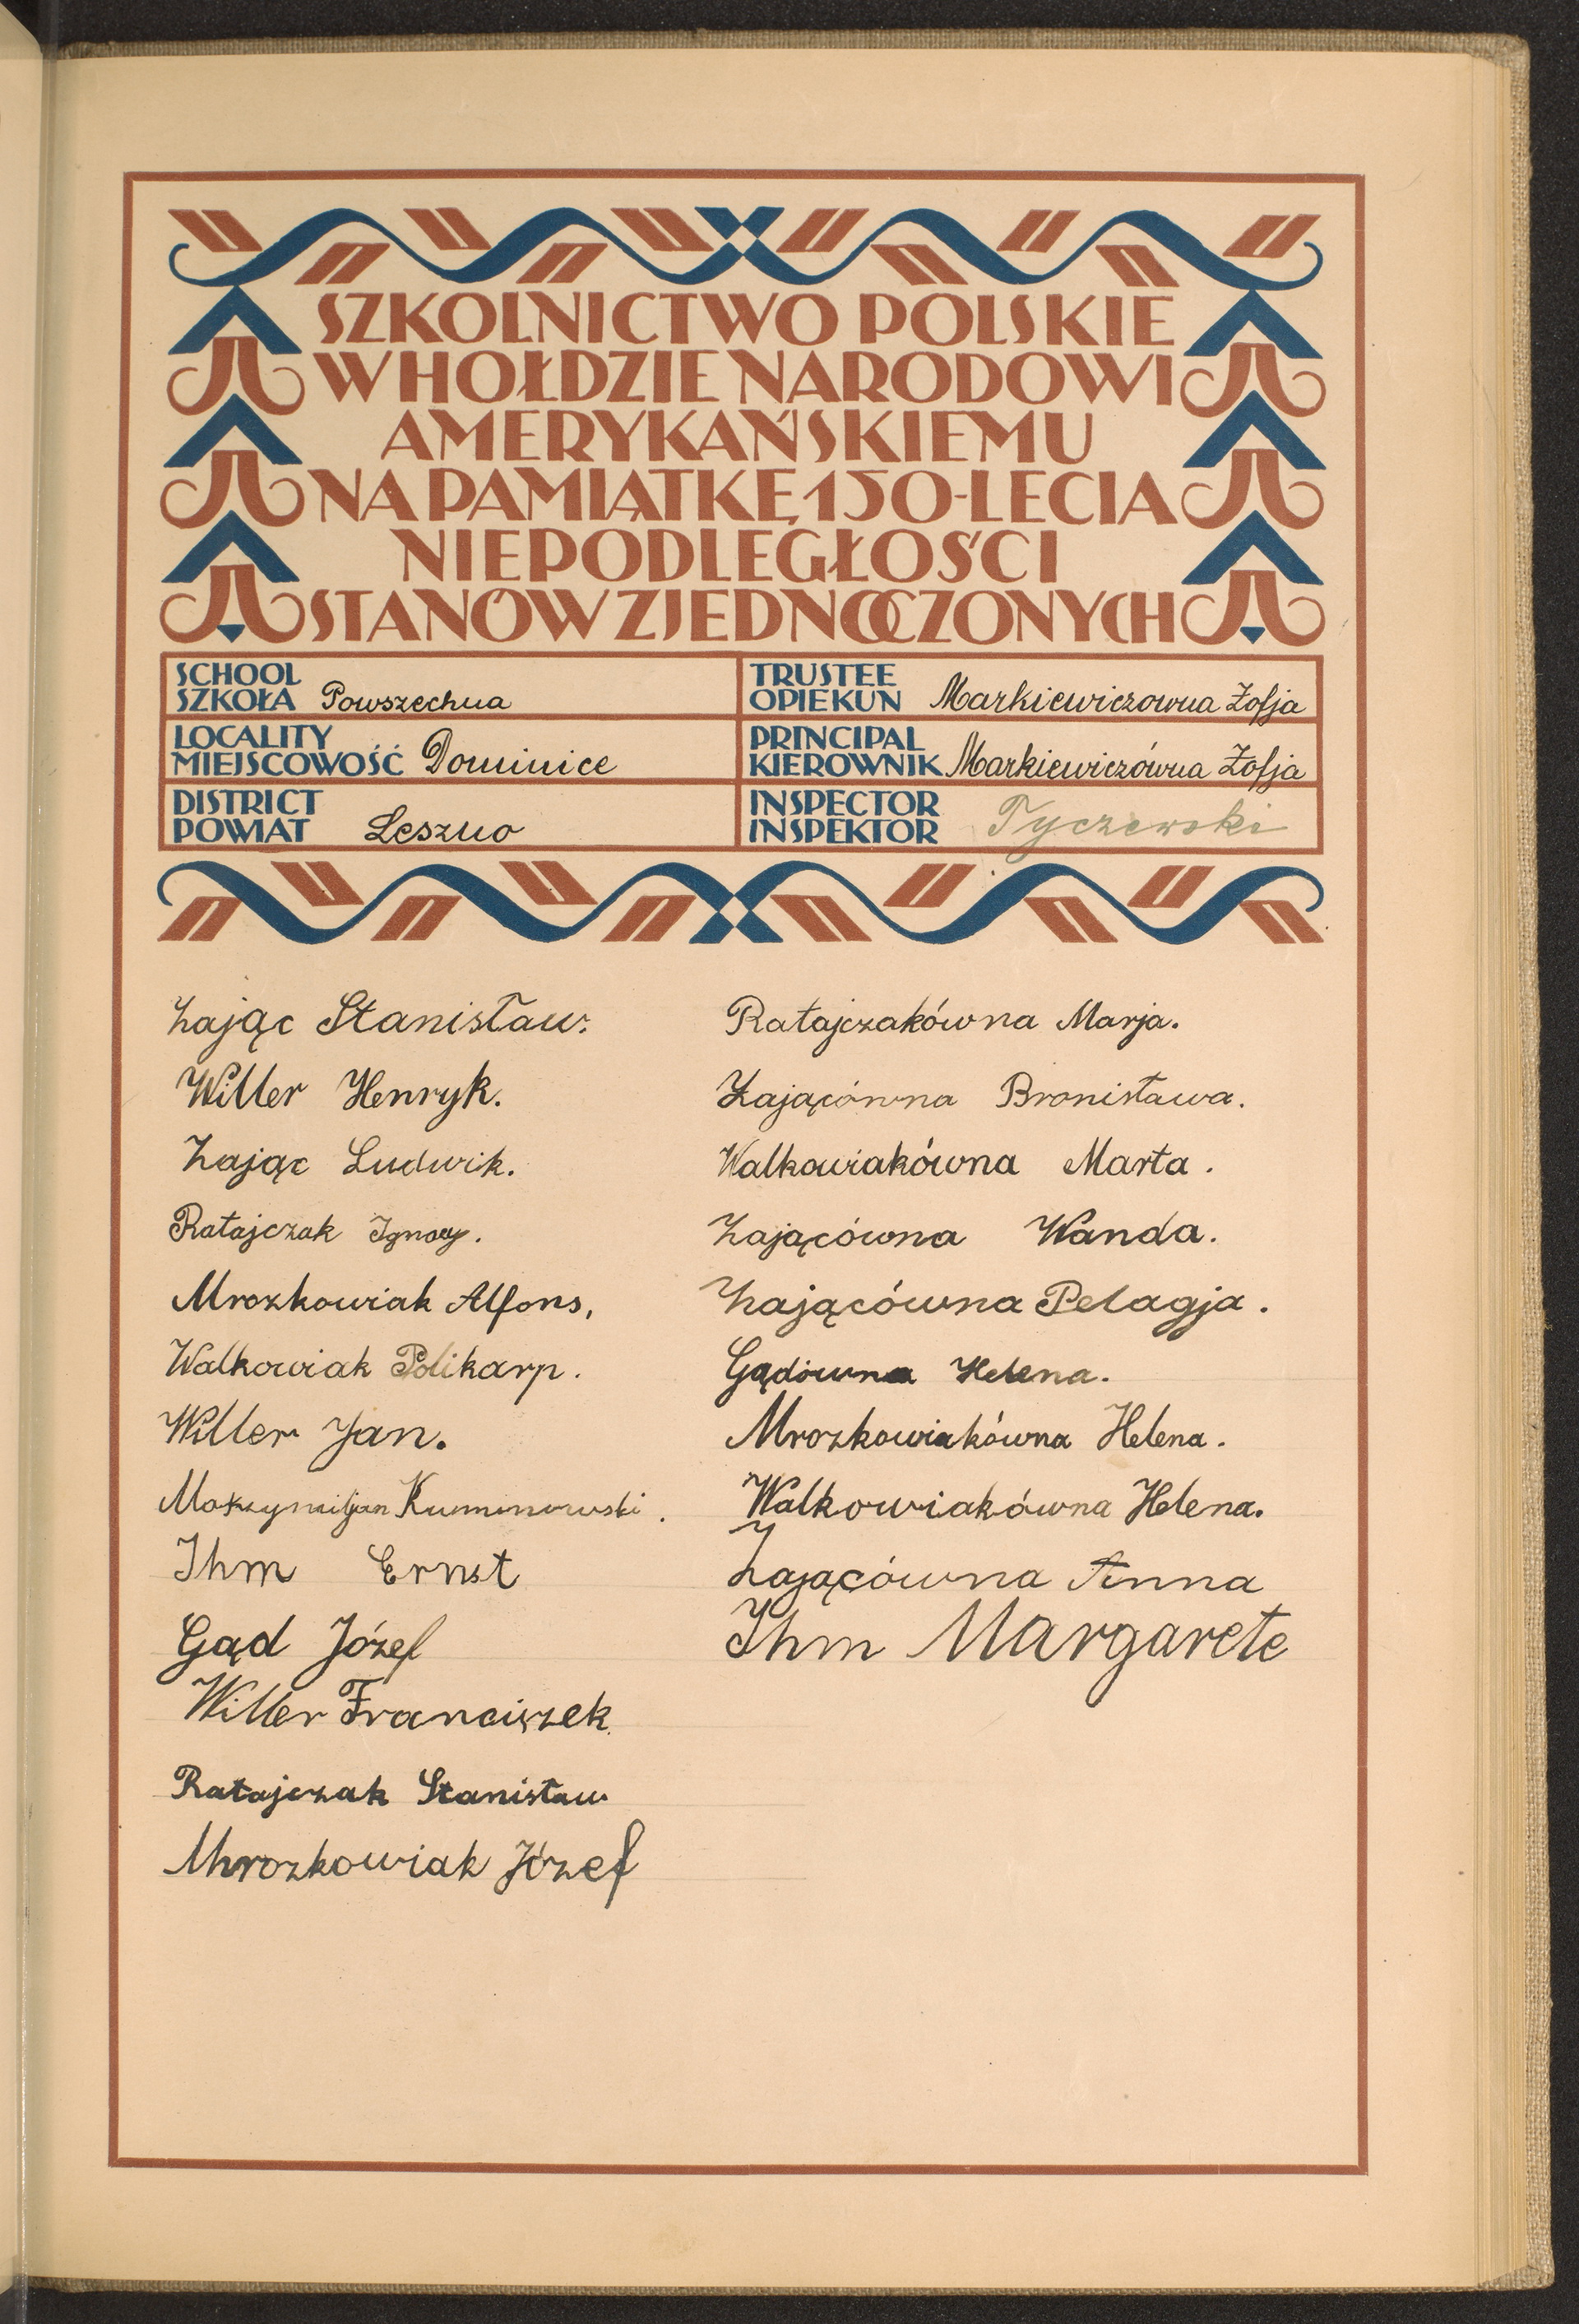 SZKOLNICTWO POLSKIE
W HOŁDZIE NARODOWI
AMERYKAŃSKIEMU
NA PAMIĄTKĘ 150-LECIA
NIEPODLEGŁOŚCI
STANÓW ZJEDNOCZONYCH
SCHOOL
SZKOŁA Powszechna
TRUSTEE
OPIEKUN Markiewiczowna Zofja
LOCALITY
MIEJSCOWOŚĆ Dominice
PRINCIPAL
KIEROWNIK Markiewiczówna Zofja
DISTRICT
POWIAT Leszno
INSPECTOR
INSPEKTOR Tyczewski
Zając Stanisław.
Willer Henryk.
Zając Ludwik.
Ratajczak Ignacy.
Mrozkowiak Alfons,
Walkowiak Polikarp.
Willer Jan.
Maksymiljan
Ihm Ernst
Gąd Józef
Willer Franciszek.
Ratajczak Stanisław
Mrozkowiak Józef
Ratajczakówna Marja.
Zającówna Bronisława.
Walkowiakówna Marta.
Zającówna Wanda.
Zającówna Pelagja.
Gądówna Helena.
Mrozkowiakówna Helena.
Walkowiakówna Helena.
Zającówna Anna
Ihm Margarete